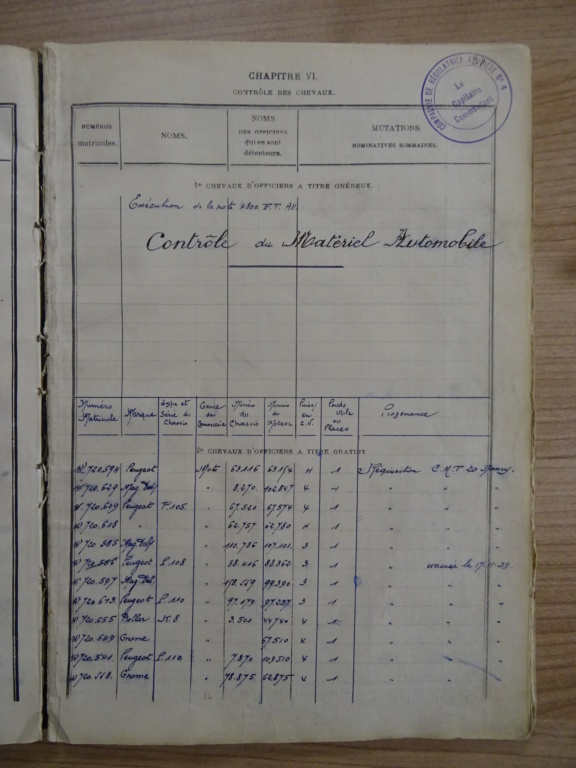 CHAPITRE VI.
CONTRÔLE DES CHEVAUX.
COMPAGNIE DE RÉGULATRICE ROUTIÈRE N° 4
Le
Capitaine
Commandant
NUMÉROS matricules. NOMS. NOMS DES OFFICIERS qui en sont détenteurs. MUTATIONS NOMINATIVES SOMMAIRES.
1° CHEVAUX D'OFFICIERS A TITRE ONÉREUX.
Exécution de la note 4800 F.T. Av.
Contrôle du Matériel Automobile
Numéro Matricule Marque Type et Série du Chassis Genre de Numéro du Chassis Numéro du Moteur Puiss/ en C.V. Poids utile ou Places Provenance
2° CHEVAUX D'OFFICIERS A TITRE GRATUIT.
W 720.594 Peugeot Moto 63.116 63.154 4 1 Réquisition C.M.T 20 Nancy.
W 720.629 Mag. Deb. " 8.270 102847 4 1 " " "
W 720.609 Peugeot P.105 " 67.520 67.574 4 1 " " "
W 720.618 " " 62.757 62.780 4 1 " " "
W 720.585 Mag. Deb. " 110.786 107.101 3 1 " " "
W 720.556 Peugeot P.108 " 38.416 88.362 3 1 " évacué le 17-11-39
W 720.597 Mag. Deb. " 118.559 99.390 3 1 " " "
W 720.613 Peugeot P.110 " 97.179 97.237 3 1 " " "
W 720.655 Dollar K.8 " 3.501 44740 4 1 " " "
W 720.649 Gnome " 57.510 4 1 " " "
W 720.541 Peugeot P.110 " 7.870 109510 4 1 " " "
W 720.568 Gnome " 78.875 62.875 4 1 " " "